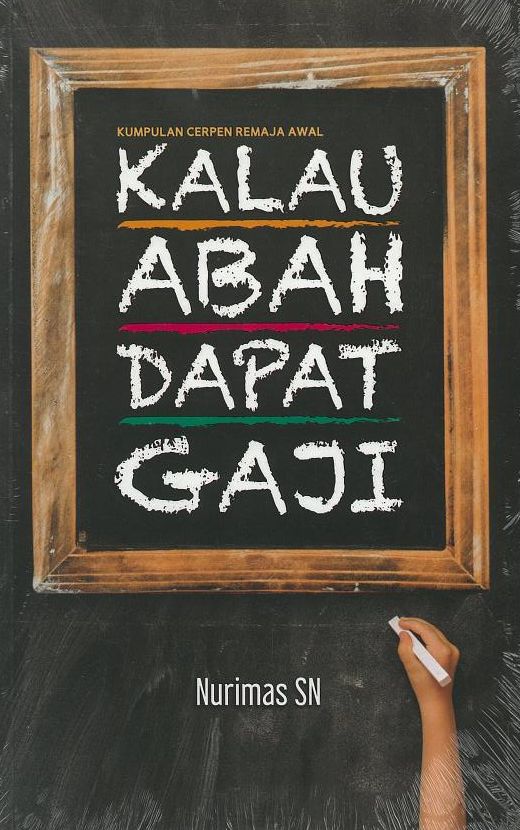 KUMPULAN CERPEN REMAJA AWAL
KALAU
ABAH
DAPAT
GAJI
Nurimas SN